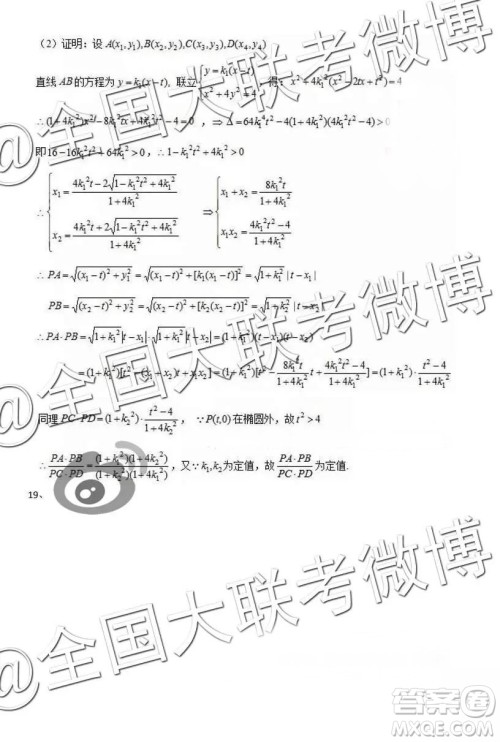 （2）证明：设 A(x₁,y₁),B(x₂,y₂),C(x₃,y₃),D(x₄,y₄)
直线 AB 的方程为 y=k₁(x-t), 联立{y=k₁(x-t) x²+4y²=4, 得: x²+4k₁²(x²-2tx+t²)=4
∴(1+4k₁²)x²-8k₁²tx+4k₁²t²-4=0 ，⇒Δ=64k₁⁴t²-4(1+4k₁²)(4k₁²t²-4)>0
即16-16k₁²t²+64k₁²>0，∴1-k₁²t²+4k₁²>0
∴{x₁=(4k₁²t-2√(1-k₁²t²+4k₁²))/(1+4k₁²) x₂=(4k₁²t+2√(1-k₁²t²+4k₁²))/(1+4k₁²) ⇒{x₁+x₂=8k₁²t/(1+4k₁²) x₁x₂=(4k₁²t²-4)/(1+4k₁²)
∴PA=√((x₁-t)²+y₁²)=√((x₁-t)²+[k₁(x₁-t)]²)=√(1+k₁²)|t-x₁|
PB=√((x₂-t)²+y₂²)=√((x₂-t)²+[k₁(x₂-t)]²)=√(1+k₁²)|t-x₂|
∴PA·PB=√(1+k₁²)|t-x₁|·√(1+k₁²)|t-x₂|=(1+k₁²)(t-x₁)(t-x₂)
=(1+k₁²)[t²-(x₁+x₂)t+x₁x₂]=(1+k₁²)[t²-8k₁²t/(1+4k₁²)t+(4k₁²t²-4)/(1+4k₁²)]=(1+k₁²)·(t²-4)/(1+4k₁²)
同理 PC·PD=(1+k₂²)·(t²-4)/(1+4k₂²)， ∵P(t,0)在椭圆外，故t²>4
∴(PA·PB)/(PC·PD)=(1+k₁²)(1+4k₂²)/(1+k₂²)(1+4k₁²)，又∵k₁,k₂为定值，故(PA·PB)/(PC·PD)为定值.
19、
@全国大联考微博
@全国大联考微博
答案圈
MXQE.COM